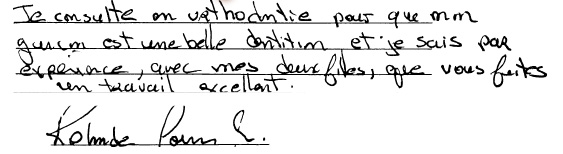 Je consulte en orthodontie pour que mon
garçon est une belle dentition et je sais par
expérience, avec mes deux filles, que vous faites
un travail excellent.